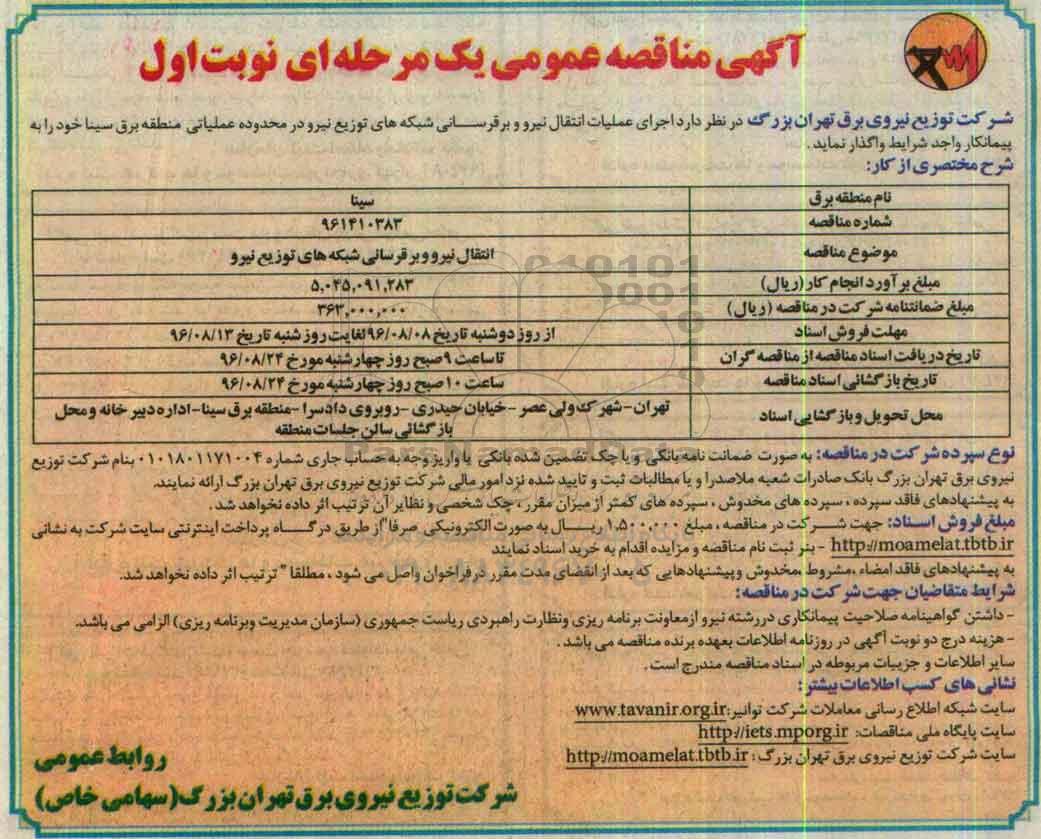 آگهی مناقصه عمومی یک مرحله ای نوبت اول
شرکت توزیع نیروی برق تهران بزرگ در نظر دارد اجرای عملیات انتقال نیرو و برقرسانی شبکه های توزیع نیرو در محدوده عملیاتی منطقه برق سینا خود را به
پیمانکار واجد شرایط واگذار نماید.
شرح مختصری از کار:
نام منطقه برق سینا
شماره مناقصه ۹۶۱۴۱۰۳۸۳
موضوع مناقصه انتقال نیرو و برقرسانی شبکه های توزیع نیرو
مبلغ برآورد انجام کار (ریال) ۵,۰۴۵,۰۹۱,۲۸۳
مبلغ ضمانتنامه شرکت در مناقصه (ریال) ۳۶۳,۰۰۰,۰۰۰
مهلت فروش اسناد از روز دوشنبه تاریخ ۹۶/۰۸/۰۸ لغایت روز شنبه تاریخ ۹۶/۰۸/۱۳
تاریخ دریافت اسناد مناقصه از مناقصه گران تا ساعت ۹ صبح روز چهارشنبه مورخ ۹۶/۰۸/۲۴
تاریخ بازگشائی اسناد مناقصه ساعت ۱۰ صبح روز چهارشنبه مورخ ۹۶/۰۸/۲۴
محل تحویل و بازگشایی اسناد تهران - شهرک ولی عصر - خیابان حیدری - روبروی دادسرا - منطقه برق سینا - اداره دبیر خانه و محل
بازگشائی سالن جلسات منطقه
نوع سپرده شرکت در مناقصه: به صورت ضمانت نامه بانکی و یا چک تضمین شده بانکی یا واریز وجه به حساب جاری شماره ۰۱۰۱۸۰۱۱۷۱۰۰۴ بنام شرکت توزیع
نیروی برق تهران بزرگ بانک صادرات شعبه ملاصدرا و یا مطالبات ثبت و تایید شده نزد امور مالی شرکت توزیع نیروی برق تهران بزرگ ارائه نمایند.
به پیشنهادهای فاقد سپرده ، سپرده های مخدوش ، سپرده های کمتر از میزان مقرر ، چک شخصی و نظایر آن ترتیب اثر داده نخواهد شد.
مبلغ فروش اسناد: جهت شرکت در مناقصه ، مبلغ ۱,۵۰۰,۰۰۰ ریال به صورت الکترونیکی صرفا" از طریق درگاه پرداخت اینترنتی سایت شرکت به نشانی
http://moamelat.tbtb.ir - بنر ثبت نام مناقصه و مزایده اقدام به خرید اسناد نمایند
به پیشنهادهای فاقد امضاء ،مشروط ،مخدوش و پیشنهادهایی که بعد از انقضای مدت مقرر در فراخوان واصل می شود ، مطلقا " ترتیب اثر داده نخواهد شد.
شرایط متقاضیان جهت شرکت در مناقصه:
- داشتن گواهینامه صلاحیت پیمانکاری در رشته نیرو از معاونت برنامه ریزی و نظارت راهبردی ریاست جمهوری (سازمان مدیریت و برنامه ریزی) الزامی می باشد.
- هزینه درج دو نوبت آگهی در روزنامه اطلاعات بعهده برنده مناقصه می باشد .
سایر اطلاعات و جزییات مربوطه در اسناد مناقصه مندرج است .
نشانی های کسب اطلاعات بیشتر:
سایت شبکه اطلاع رسانی معاملات شرکت توانیر: www.tavanir.org.ir
سایت پایگاه ملی مناقصات: http://iets.mporg.ir
سایت شرکت توزیع نیروی برق تهران بزرگ : http://moamelat.tbtb.ir
روابط عمومی
شرکت توزیع نیروی برق تهران بزرگ (سهامی خاص)